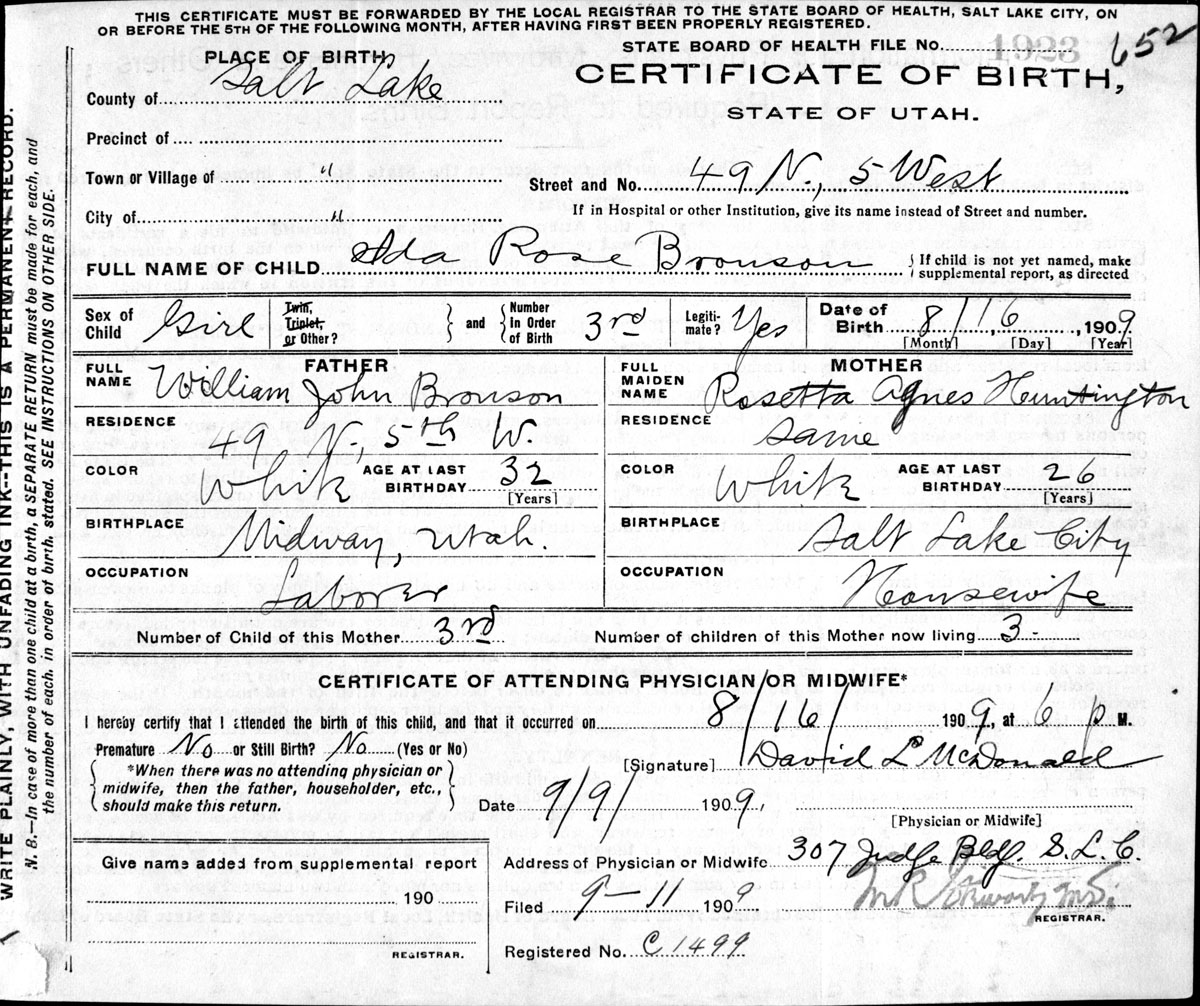 THIS CERTIFICATE MUST BE FORWARDED BY THE LOCAL REGISTRAR TO THE STATE BOARD OF HEALTH, SALT LAKE CITY, ON
OR BEFORE THE 5TH OF THE FOLLOWING MONTH, AFTER HAVING FIRST BEEN PROPERLY REGISTERED.
STATE BOARD OF HEALTH FILE No. 1923 652
PLACE OF BIRTH
CERTIFICATE OF BIRTH,
STATE OF UTAH.
County of Salt Lake
Precinct of
Town or Village of "
Street and No. 49 N., 5 West
City of "
If in Hospital or other Institution, give its name instead of Street and number.
FULL NAME OF CHILD Ada Rose Bronson
If child is not yet named, make
supplemental report, as directed
Sex of Child Girl
Twin, Triplet, or Other?
and Number In Order of Birth 3rd
Legitimate? Yes
Date of Birth 8/16, 1909
[Month] [Day] [Year]
FATHER
FULL NAME William John Bronson
RESIDENCE 49 N, 5th W.
COLOR White AGE AT LAST BIRTHDAY 32
[Years]
BIRTHPLACE Midway, Utah.
OCCUPATION Laborer
MOTHER
FULL MAIDEN NAME Rosetta Agnes Huntington
RESIDENCE Same
COLOR White AGE AT LAST BIRTHDAY 26
[Years]
BIRTHPLACE Salt Lake City
OCCUPATION Housewife
Number of Child of this Mother 3rd Number of children of this Mother now living 3 -
CERTIFICATE OF ATTENDING PHYSICIAN OR MIDWIFE*
I hereby certify that I attended the birth of this child, and that it occurred on 8/16/ 1909, at 6 p M.
Premature No or Still Birth? No (Yes or No)
[Signature] David L McDonald
*When there was no attending physician or
midwife, then the father, householder, etc.,
should make this return.
Date 9/9/ 1909,
[Physician or Midwife]
Give name added from supplemental report
190
REGISTRAR.
Address of Physician or Midwife 307 Judge Bldg. S.L.C.
Filed 9-11 1909
REGISTRAR.
Registered No. C1499
WRITE PLAINLY, WITH UNFADING INK--THIS IS A PERMANENT RECORD.
N. B.--In case of more than one child at a birth, a SEPARATE RETURN must be made for each, and
the number of each, in order of birth, stated. SEE INSTRUCTIONS ON OTHER SIDE.